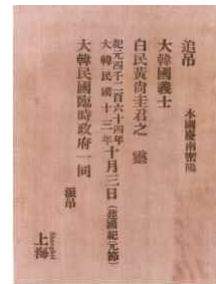 追吊
本國慶南密陽
大韓國義士
白民黃尙圭君之 靈
紀元四千二百六十四年
大韓民國十三年十月三日(建國紀元節)
大韓民國臨時政府一同
謹吊
上海